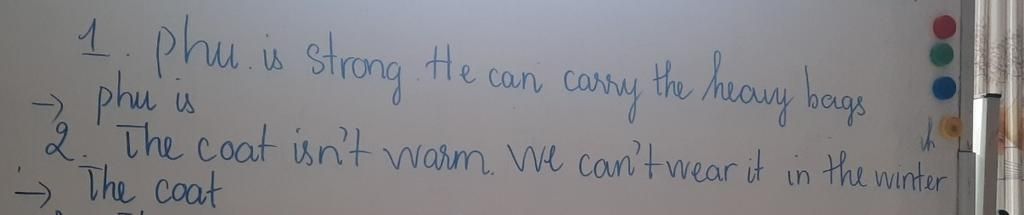 1. Phu is strong. He can carry the heavy bags
→ phu is
2. The coat isn't warm. We can't wear it in the winter
→ The coat